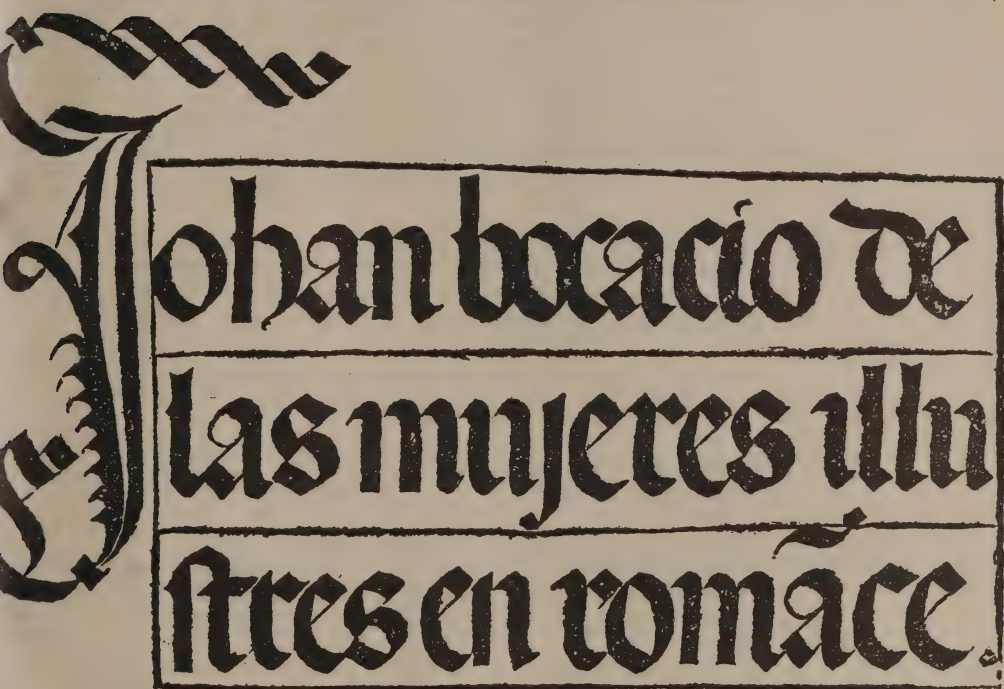 Johan bocacio de
las mujeres illu
ſtres en romãce.